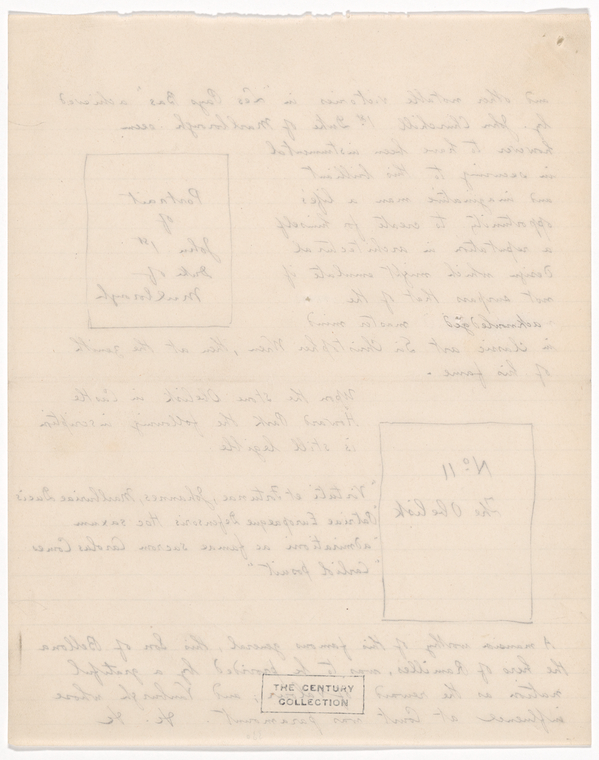 and other notable victories in "Les Pays Bas" achieved
by John Churchill 1st Duke of Marlborough seem
however to have been instrumental
in securing to this brilliant
and imaginative man a life's
opportunity to create for himself
a reputation in architectural
Design which might emulate if
not surpass that of the
acknowledged master mind
in classic art Sir Christopher Wren, then at the zenith
of his fame.
Portrait
of
John 1st
Duke of
Marlborough
Upon the stone Obelisk in Castle
Howard Park the following inscription
is still legible
No 11
The Obelisk
"Virtuti et Fortunae, Johannes, Marlburiae Ducis
Patriae Europaeque Defensoris Hoc saxum
admirationi ac famae sacrum Carolus Comes
Carliol posuit"
A mansion worthy of this famous general, this Son of Bellona
the hero of Ramillies, was to be provided by a grateful
nation as the reward and Vanbrugh whose
influence at Court was paramount &c. &c
THE CENTURY
COLLECTION